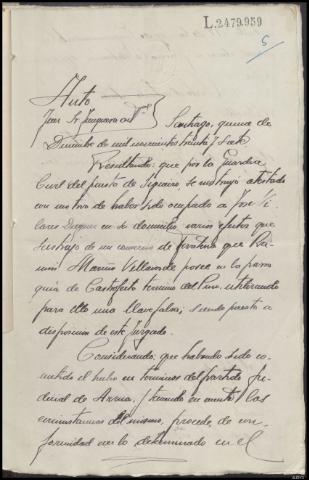 L.2479.959
5
Auto
Juez Sr.
Santiago, quince de
Diciembre de mil novecientos treinta y siete
Resultando: que por la Guardia
Civil del puesto de se instruyó atestado
con motivo de haber sido ocupado a José
en su domicilio, varios efectos que
sustrajo de un comercio de que
Mariño Villaverde posee en la parro
quia de Castrofeito término del Pino, utilizando
para ello una llave falsa; siendo puesto a
disposición de este Juzgado.
Considerando: que habiendo sido co-
metido el hecho en términos del partido ju-
dicial de Arzúa, teniendo en cuenta las
circunstancias del mismo, procede de con-
formidad con lo determinado en el